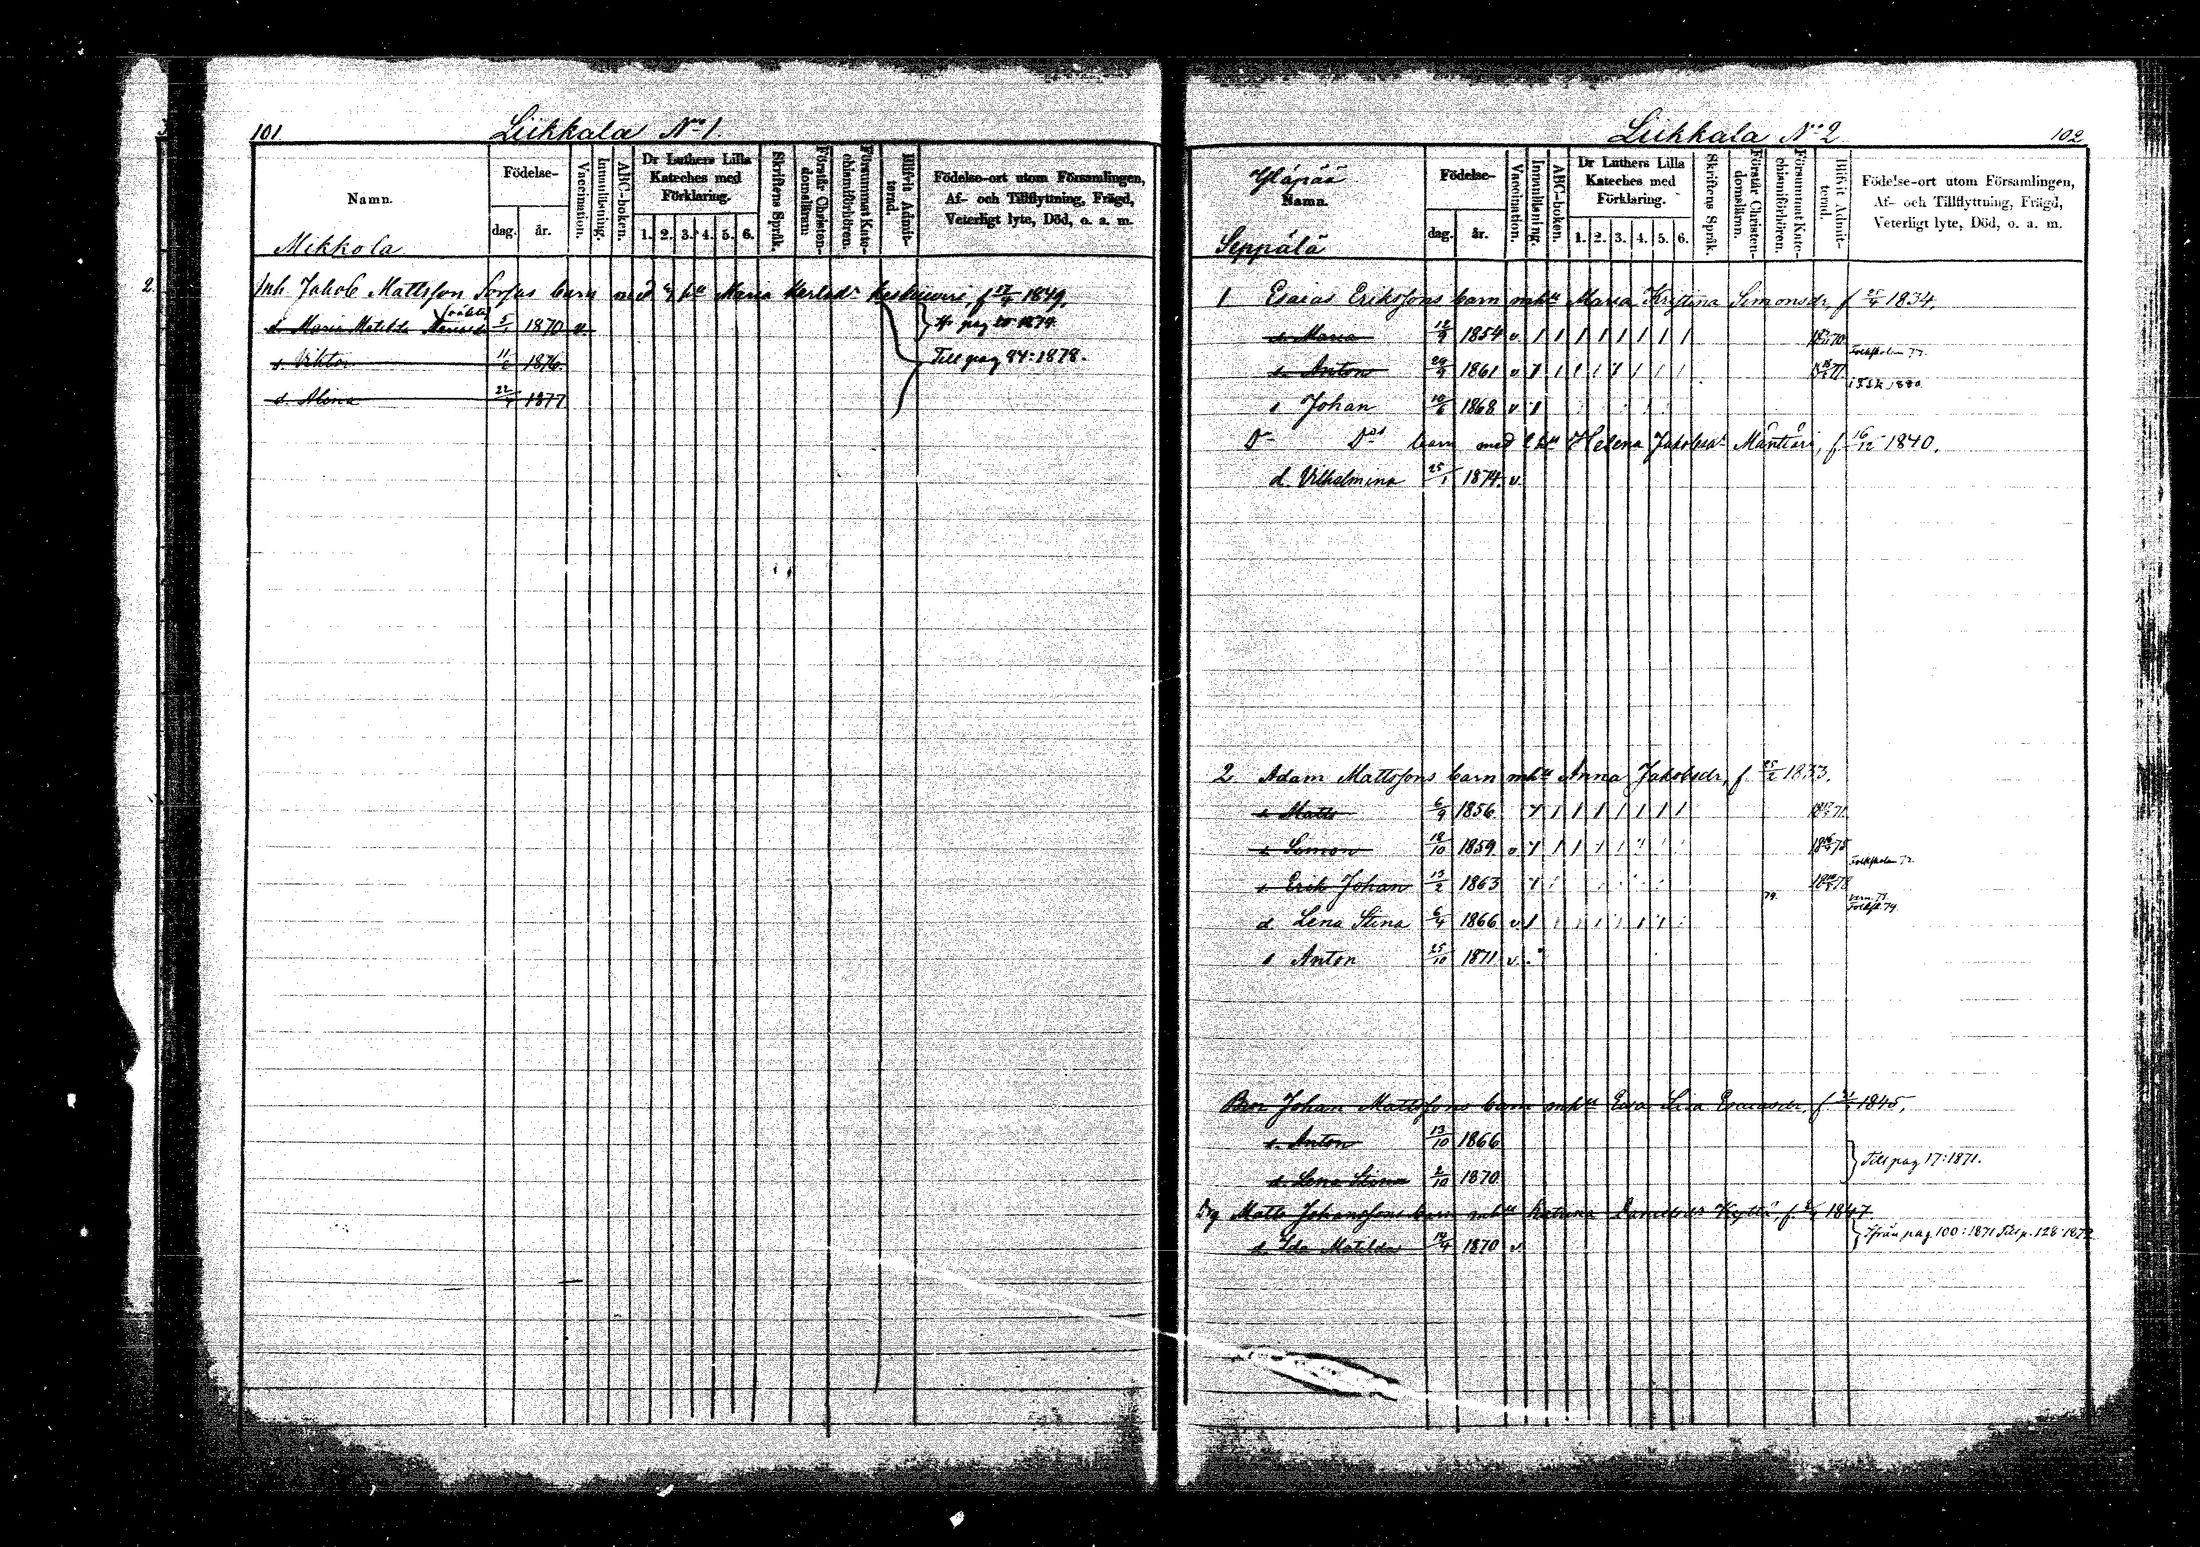 101 Liikkala No 1.
Namn.
Mikkola
Födelse-
dag. år.
Vaccination.
Innanläsning.
ABC-boken.
Dr Luthers Lilla Kateches med Förklaring.
1. 2. 3. 4. 5. 6.
Skriftens Språk.
Förstår Christendomsläran.
Försummat Katechismiförhören.
Blifvit Admitterad.
Födelse-ort utom Församlingen,
Af- och Tillflyttning, Frägd,
Veterligt lyte, Död, o. a. m.
2 Inh. Jakob Mattsson barn med Maria f. 17/9 1849.
d. Maria Matilda 5/1 1870 v.
s. Viktor 11/6 1876.
Till pag 84: 1878.
d. Alina 22/4 1877
Liikkala No 2 102
Yläpää
Namn.
Seppälä
Födelse-
dag. år.
Vaccination.
Innanläsning.
ABC-boken.
Dr Luthers Lilla Kateches med Förklaring.
1. 2. 3. 4. 5. 6.
Skriftens Språk.
Förstår Christendomsläran.
Försummat Katechismiförhören.
Blifvit Admitterad.
Födelse-ort utom Församlingen,
Af- och Tillflyttning, Frägd,
Veterligt lyte, Död, o. a. m.
1 Esaias Erikssons barn m hu Maria Kristina Simonsdr, f 25/4 1834.
d. Maria 12/9 1854 v.
s. Anton 29/9 1861 v
Folkskolan 77.
s Johan 10/6 1868 v
Do Do barn med 2 hu Helena Jakobsdr Mänttäri, f. 16/12 1840.
d. Vilhelmina 25/1 1874. v.
2 Adam Mattssons barn m hu Anna Jakobsdr, f. 25/2 1833.
s Matts 6/9 1856.
s. Simon 18/10 1859 v
s Erik Johan 13/2 1863 79.
d. Lena Stina 6/4 1866 v
s Anton 25/10 1871 v.
Bror Johan Mattssons barn m hu Eva Lisa Esaiasdr, f 1845.
s. Anton 13/10 1866
d. Lena Stina 2/10 1870
Till pag 17: 1871.
Drg Matts Johanssons barn m hu Katrina Danielsdr Kyttä, f. 1847.
d. Ida Matilda 14/4 1870 v
Ifrån pag. 100: 1871 Till p. 128 1872